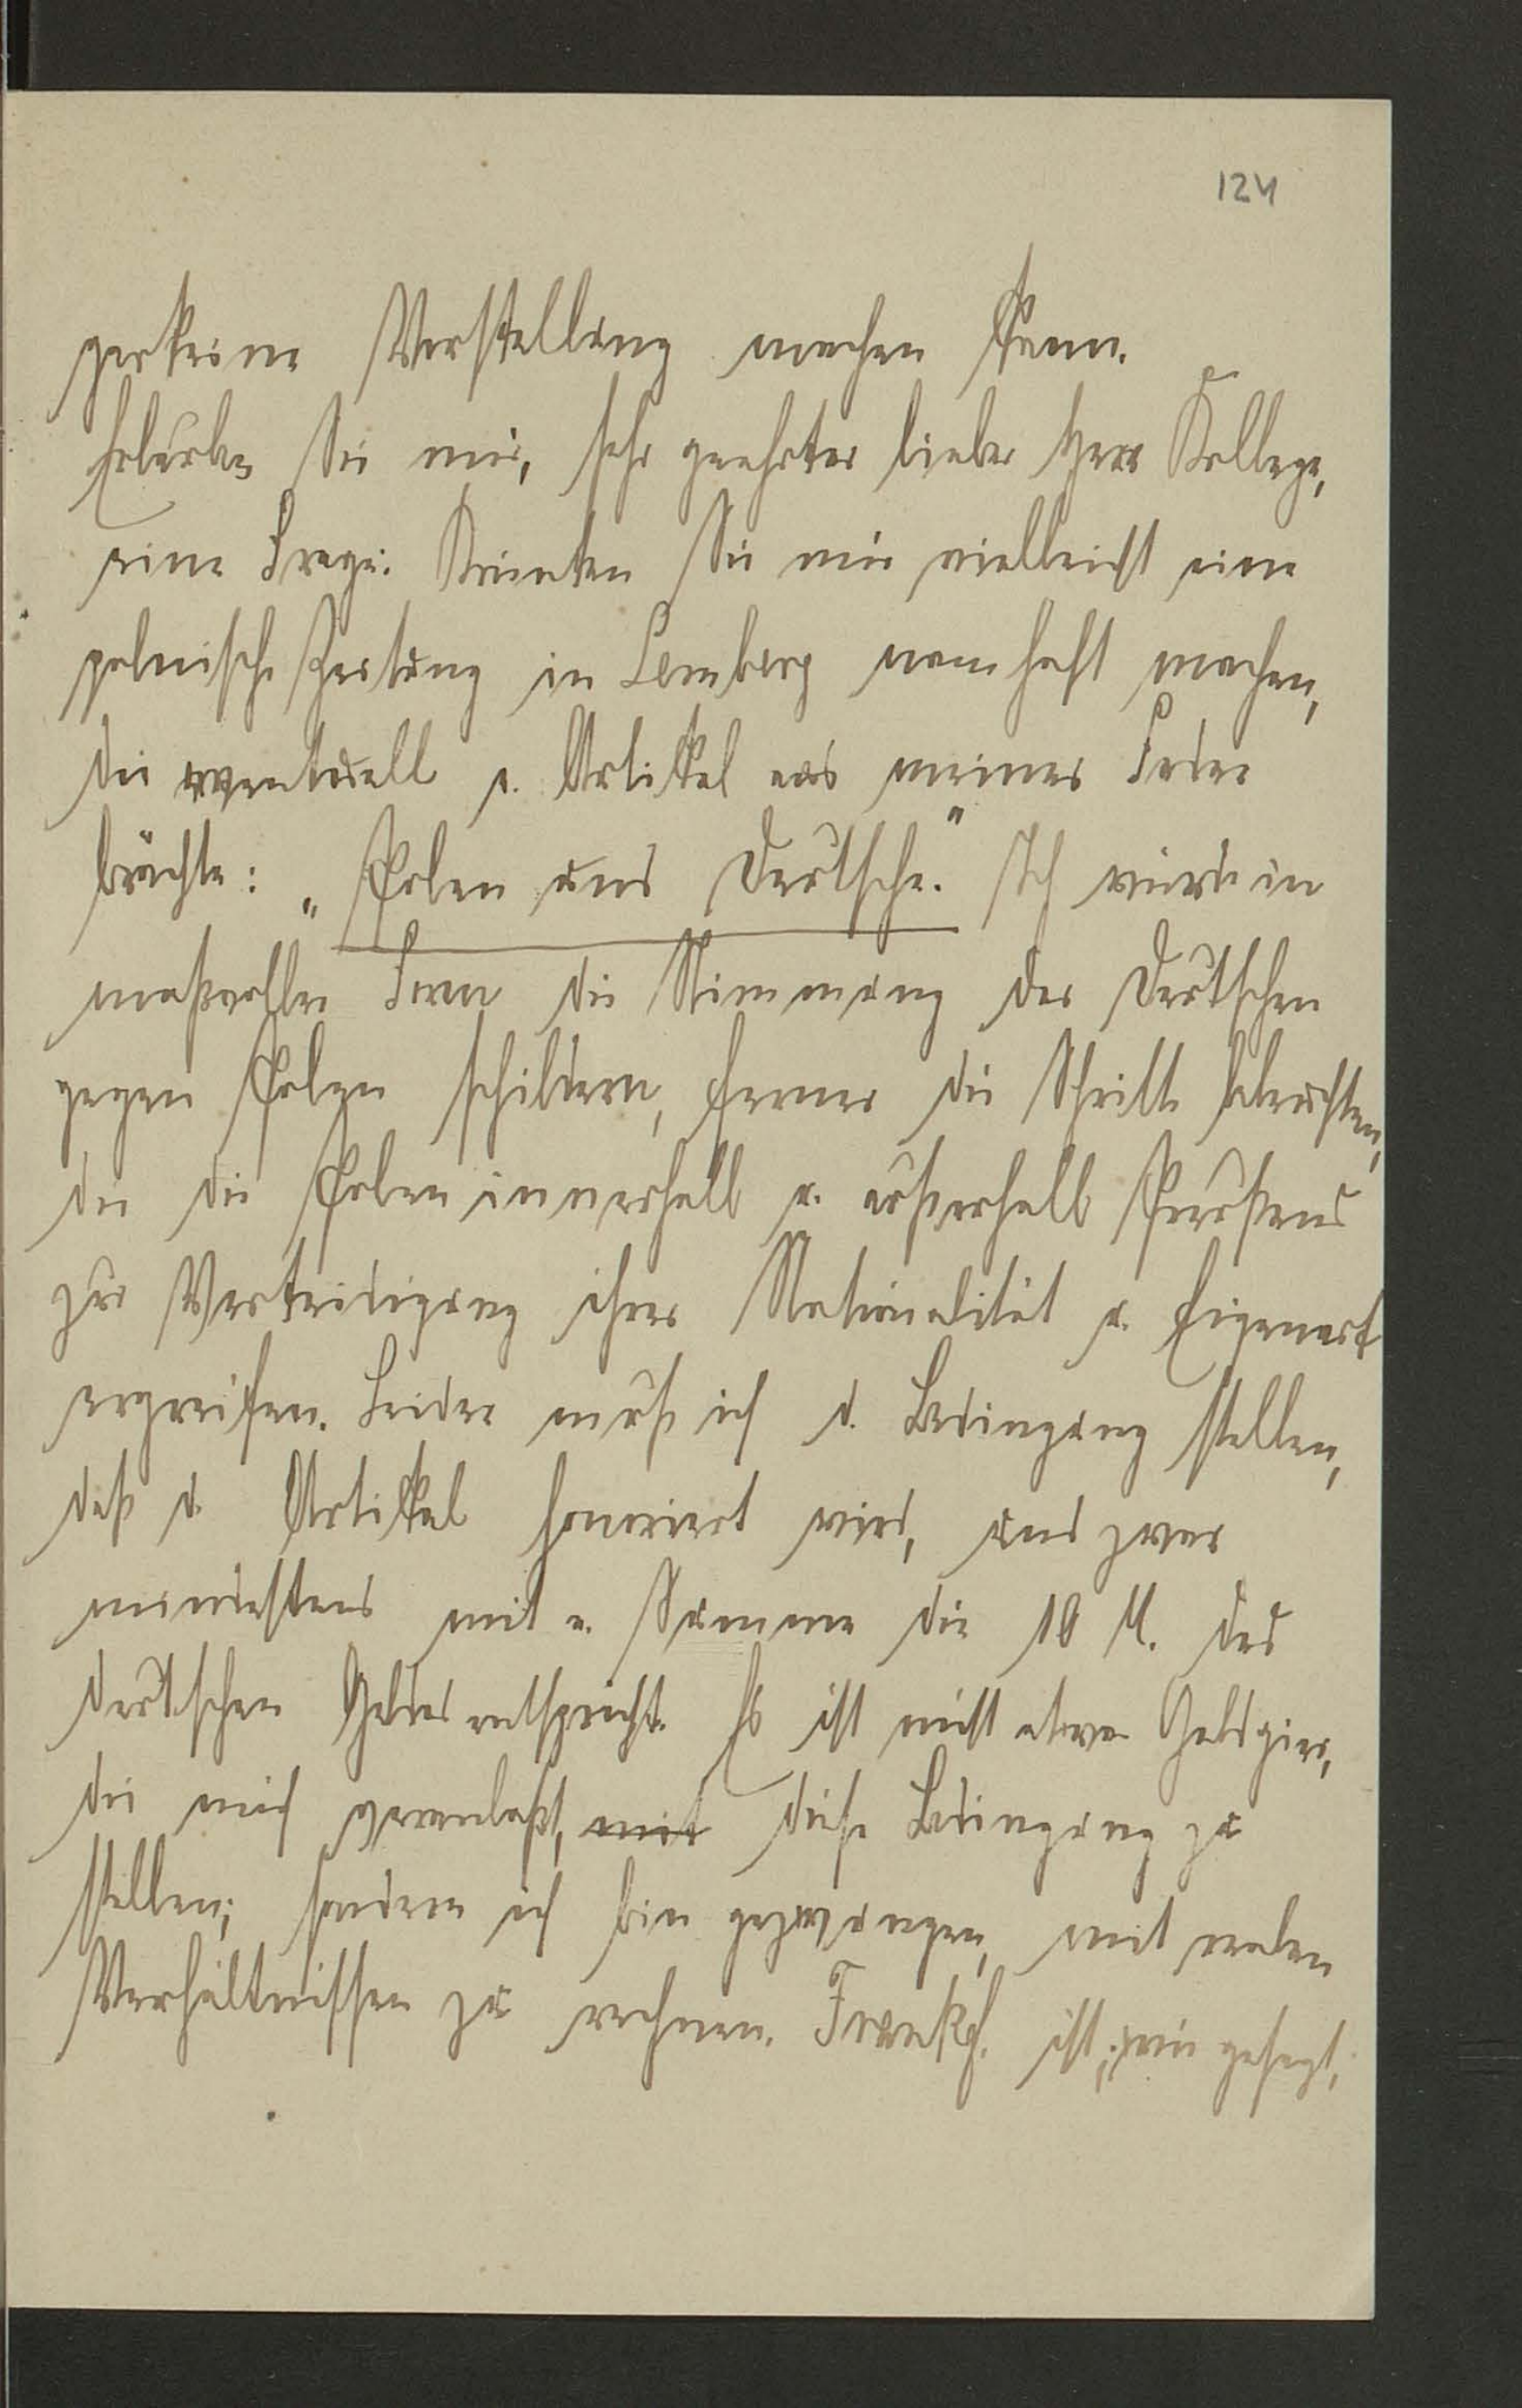 124
garkeine Vorstellung machen kann.
Erlauben Sie mir, sehr geehrter lieber Herr Kollege,
eine Frage: Könnten Sie mir vielleicht eine
polnische Zeitung in Lemberg namhaft machen,
die eventuell e. Artikel aus meiner Feder
brächte: „Polen und Deutsche." Ich würde in
maßvoller Form die Stimmung der Deutschen
gegen Polen schildern, ferner die Schritte beleuchten,
die die Polen innerhalb u. außerhalb Preußens
zur Verteidigung ihrer Nationalität u. Eigenart
ergreifen. Leider muß ich d. Bedingung stellen,
daß d. Artikel honoriert wird, und zwar
mindestens mit e. Summe die 10 M. des
deutschen Geldes entspricht. Es ist nicht etwa Geldgier,
die mich veranlaßt, mit diese Bedingung zu
stellen; sondern ich bin gezwungen, mit realen
Verhältnissen zu rechnen. Frankf. ist, wie gesagt,